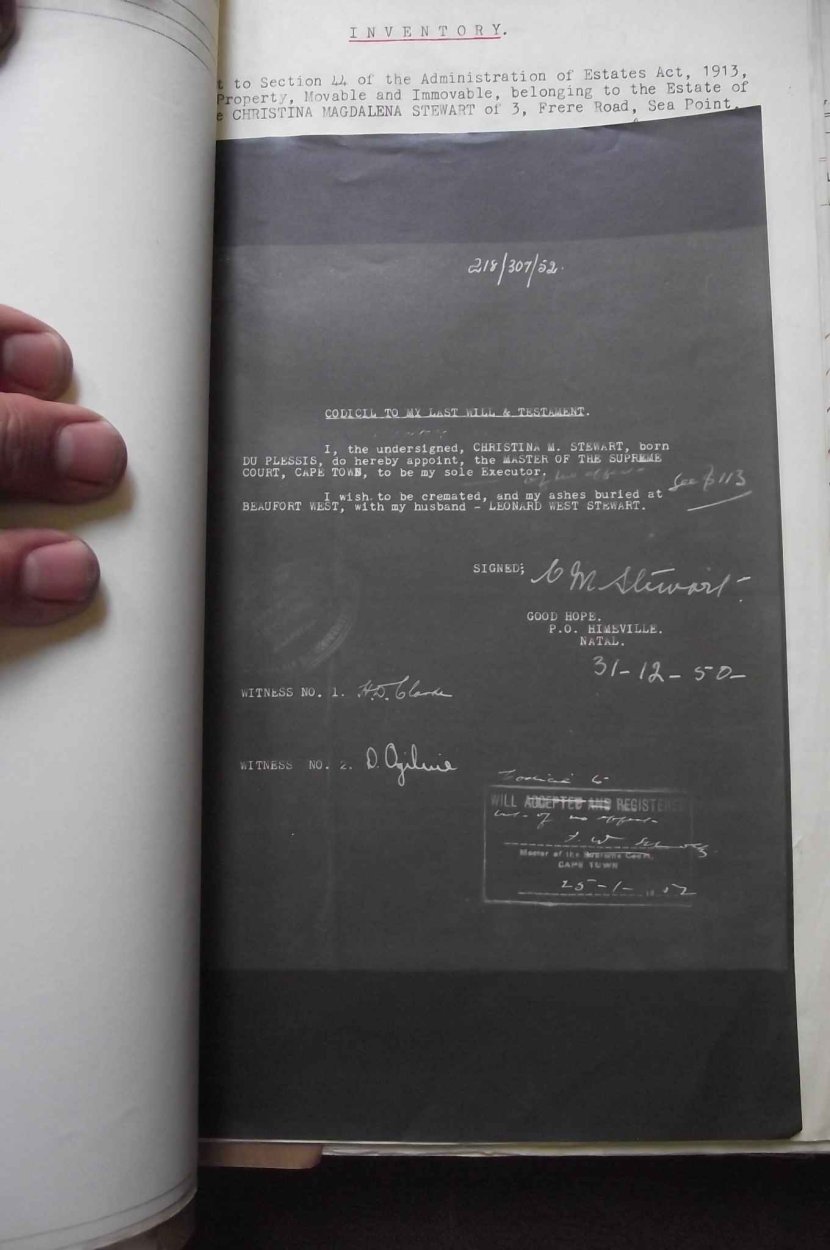 INVENTORY.
t to Section 44 of the Administration of Estates Act, 1913,
Property, Movable and Immovable, belonging to the Estate of
e CHRISTINA MAGDALENA STEWART of 3, Frere Road, Sea Point.
218/307/52.
CODICIL TO MY LAST WILL & TESTAMENT.
I, the undersigned, CHRISTINA M. STEWART, born
DU PLESSIS, do hereby appoint, the MASTER OF THE SUPREME
COURT, CAPE TOWN, to be my sole Executor.
See 113
I wish to be cremated, and my ashes buried at
BEAUFORT WEST, with my husband - LEONARD WEST STEWART.
SIGNED; C M Stewart
GOOD HOPE.
P.O. HIMEVILLE.
NATAL.
31-12-50-
WITNESS NO. 1. H.D. Clarke
WITNESS NO. 2. D. Ogilvie
WILL ACCEPTED AND REGISTERED
of no
Master of the Supreme Court,
CAPE TOWN
25-1-1952